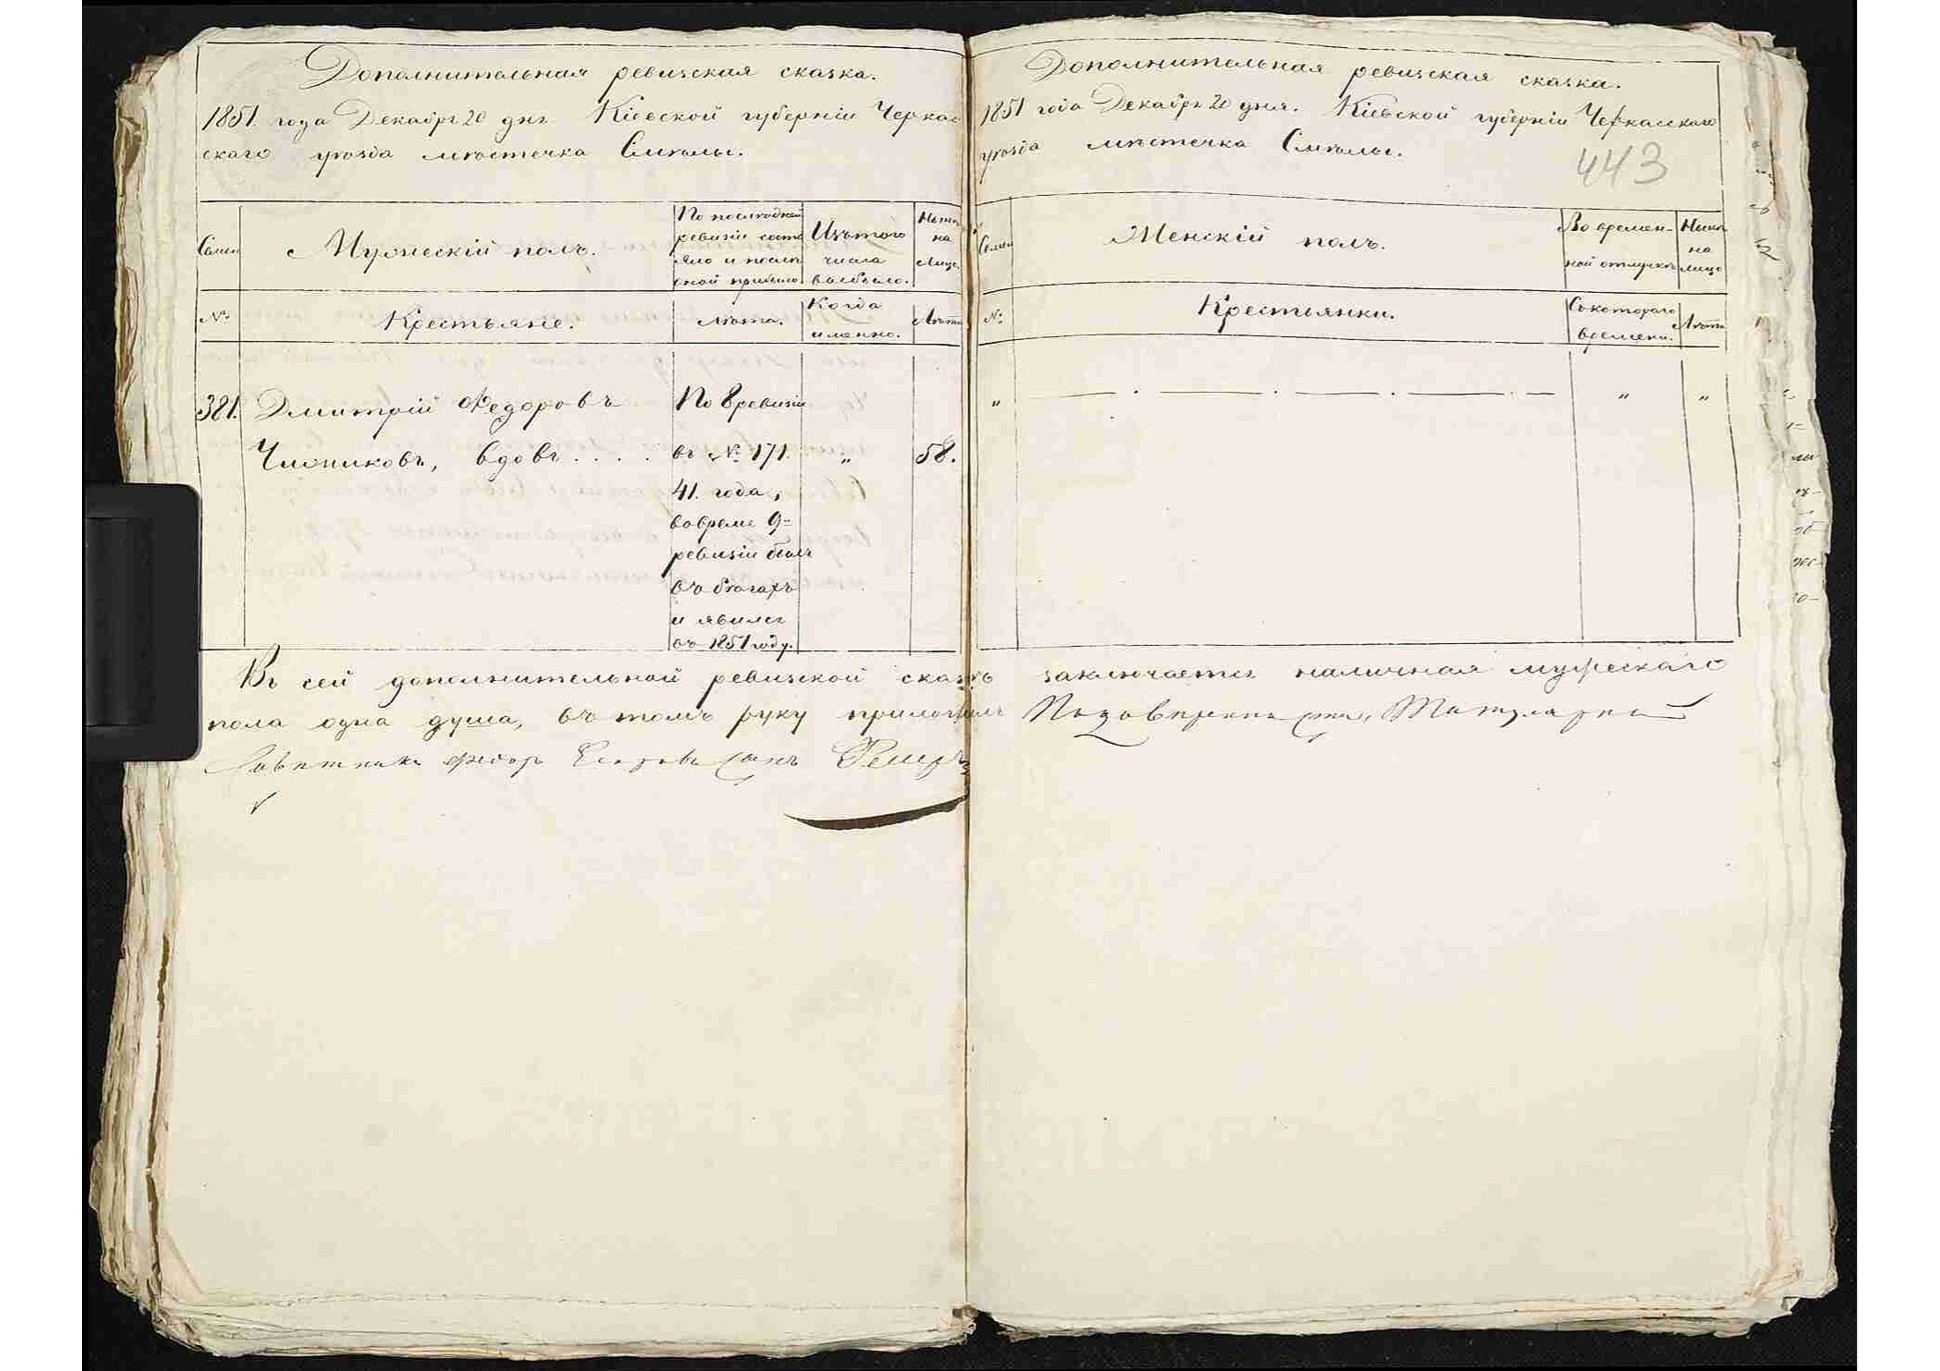 Дополнительная ревизская сказка.
1851. года Декабря 20 дня Кіевской губерніи Черкас
скаго уѣзда мѣстечка Смѣлы.
Семьи
Мужескій полъ.
По последней
ревизіи состо
яло и послѣ
оной прибыло
Изъ того
числа
выбыло.
Нынѣ
на
Лицо
№
Крестьяне.
Лѣта.
Когда
именно.
Лѣта
381. Дмитрій Федоровъ
По 8 ревизіи
вдовъ . . . .
въ № 171.
"
58.
41. года,
вовремя 9=
ревизіи былъ
въ бѣгахъ
и явился
въ 1851 году.
Дополнительная ревизская сказка.
1851 года Декабря 20 дня. Кіевской губерніи Черкасскаго
уѣзда мѣстечка Смѣлы.
443
Семьи
Женскій полъ.
Во времен-
ной отлучкѣ
Нынѣ
на
лицо
№
Крестьянки.
Съ котораго
времени.
Лѣта
" " "
Въ сей дополнительной ревизской сказкѣ заключается наличная мужескаго
пола одна душа, въ томъ руку приложилъ